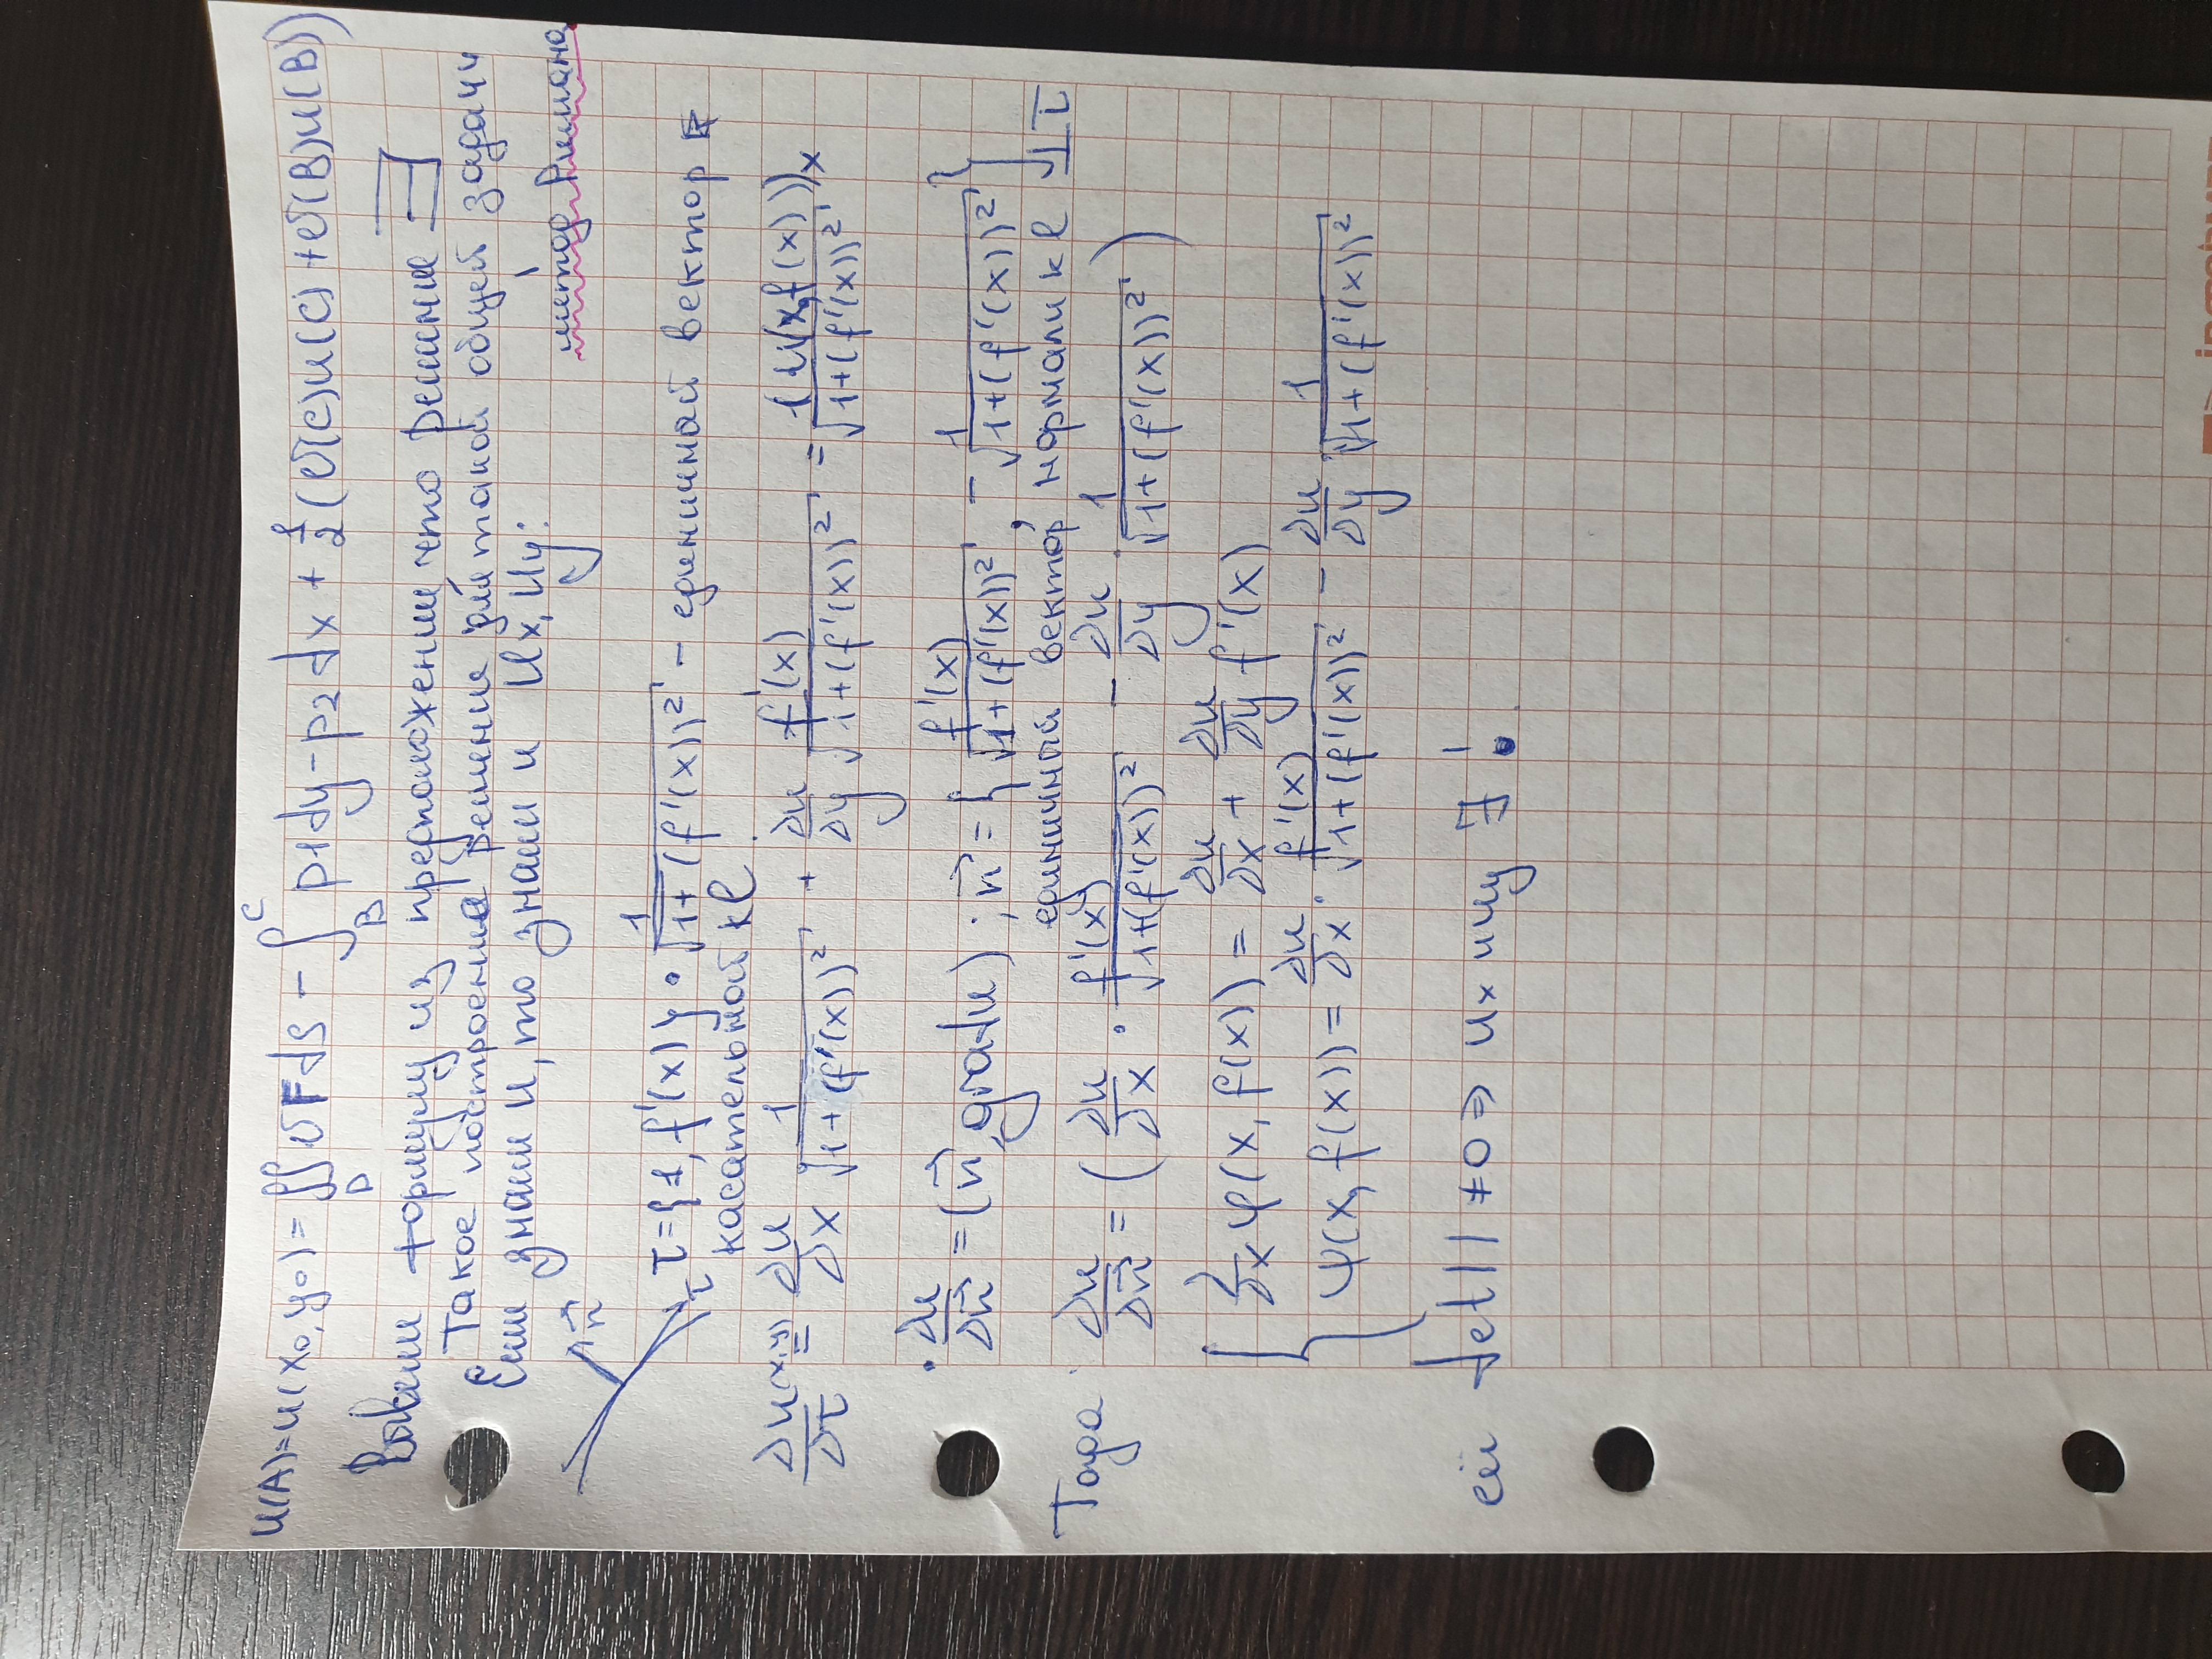 u(A)=u(x₀,y₀)=∬_D vFds - ∫_B^C p₁dy-p₂dx + 1/2(v(C)u(C)+v(B)u(B))
формулу из предположении что решение ∃
Такое построение решении для такой общей задачи
метод Римана
Если знаем u, то знаем и Ux, Uy:
n⃗
τ
τ={1, f'(x)}·1/√(1+(f'(x))²) - единичной вектор
касательной к l
∂u(x,y)/∂τ = ∂u/∂x 1/√(1+(f'(x))²) + ∂u/∂y f'(x)/√(1+(f'(x))²) = 1/√(1+(f'(x))²) (u(x,f(x)))x
· ∂u/∂n⃗ =(n⃗, grad u); n⃗={f'(x)/√(1+(f'(x))², - 1/√(1+(f'(x))²}
единичный вектор, нормали к l ⊥ τ
Тогда: ∂u/∂n⃗ = (∂u/∂x · f'(x)/√(1+(f'(x))² - ∂u/∂y · 1/√(1+(f'(x))²)
{ ∂/∂x φ(x, f(x)) = ∂u/∂x + ∂u/∂y f'(x)
ψ(x, f(x)) = ∂u/∂x · f'(x)/√(1+(f'(x))² - ∂u/∂y · 1/√(1+(f'(x))²
если det|| ≠0 ⇒ ux и uy ∃!.